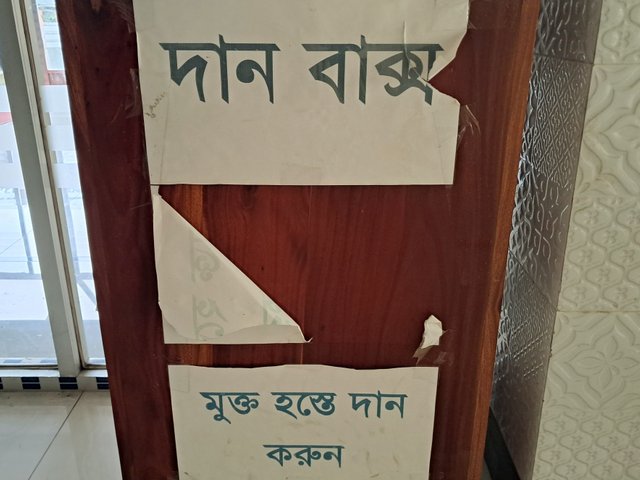 দান বাক্স
মুক্ত হস্তে দান
করুন